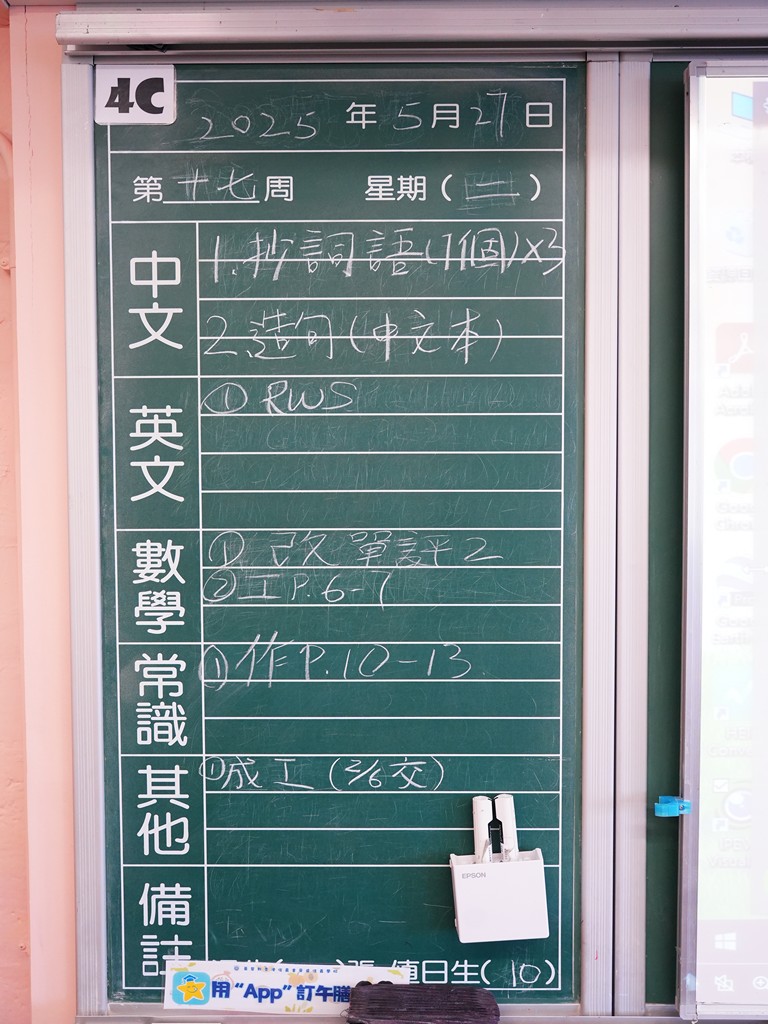 4C
2025 年 5月27日
第十七周 星期(二)
中文
1.抄詞語(7個)x3
2.造句(中文本)
英文
① RWS
數學
① 改單評2
② 工P.6-7
常識
① 作P.10-13
其他
① 成工(2/6交)
EPSON
備註
值日生(10)
用“App”訂午膳